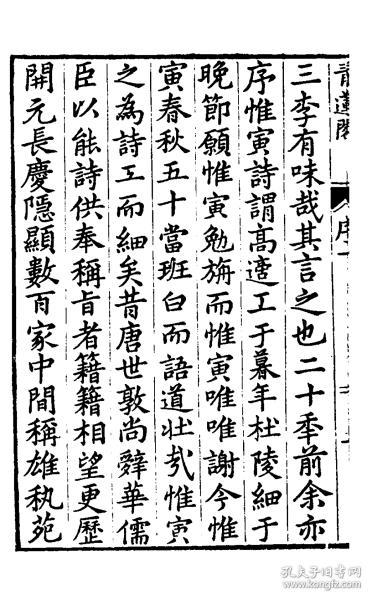 青蓮閣
序
三李有味哉其言之也二十秊前余亦
序惟寅詩謂高適工于暮年杜陵細于
晚節願惟寅勉旃而惟寅唯唯謝今惟
寅春秋五十當班白而語道壯㢤惟寅
之為詩工而細矣昔唐世敦尚辤華儒
臣以能詩供奉稱旨者籍籍相望更歷
開元長慶隱顯數百家中間稱雄秇苑
孔夫子旧书网
www.kongfz.com